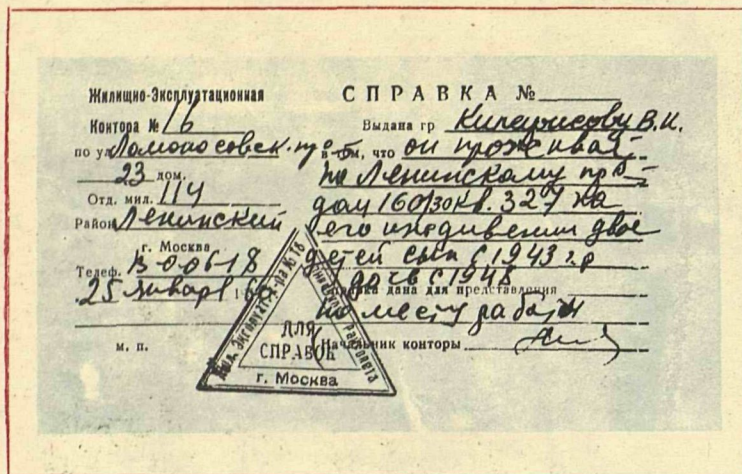 Жилищно-Эксплуатационная
Контора № 16
по ул. Ломоносовск. пр
23 дом.
Отд. мил. 114
Район Ленинский
г. Москва
Телеф. В 0 06 18
25 января
м. п.
СПРАВКА №
Выдана гр Кипарисову В.И.
в том, что он проживает
по Ленинскому пр
дом 160/30 кв. 327 на
его иждивении двое
детей сын с 1943 г.р
дочь с 1948
Справка дана для представления
по месту работы
Начальник конторы
ДЛЯ
СПРАВОК
г. Москва